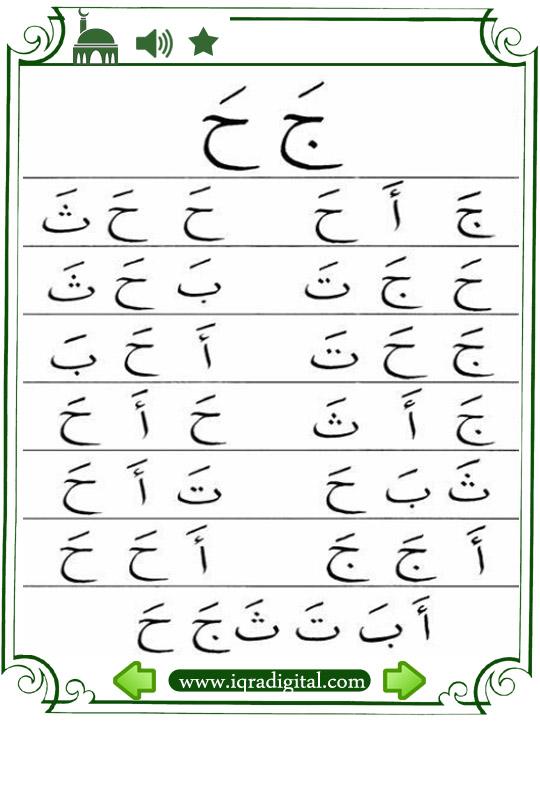 جَ حَ
جَ أَ حَ حَ حَ ثَ
حَ جَ تَ بَ حَ ثَ
جَ حَ تَ أَ حَ بَ
جَ أَ ثَ حَ أَ حَ
ثَ بَ حَ تَ أَ حَ
أَ جَ جَ أَ حَ حَ
أَ بَ تَ ثَ جَ حَ
www.iqradigital.com